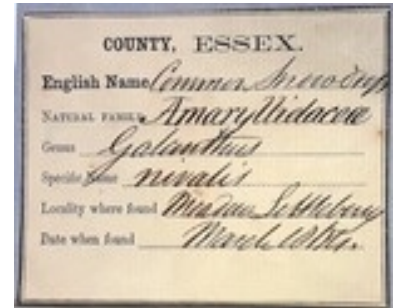 COUNTY, ESSEX.
English Name Common Snowdrop
NATURAL FAMILY Amaryllidaceæ
Genus Galanthus
Specific Name nivalis
Locality where found Meadow Littlebury
Date when found March